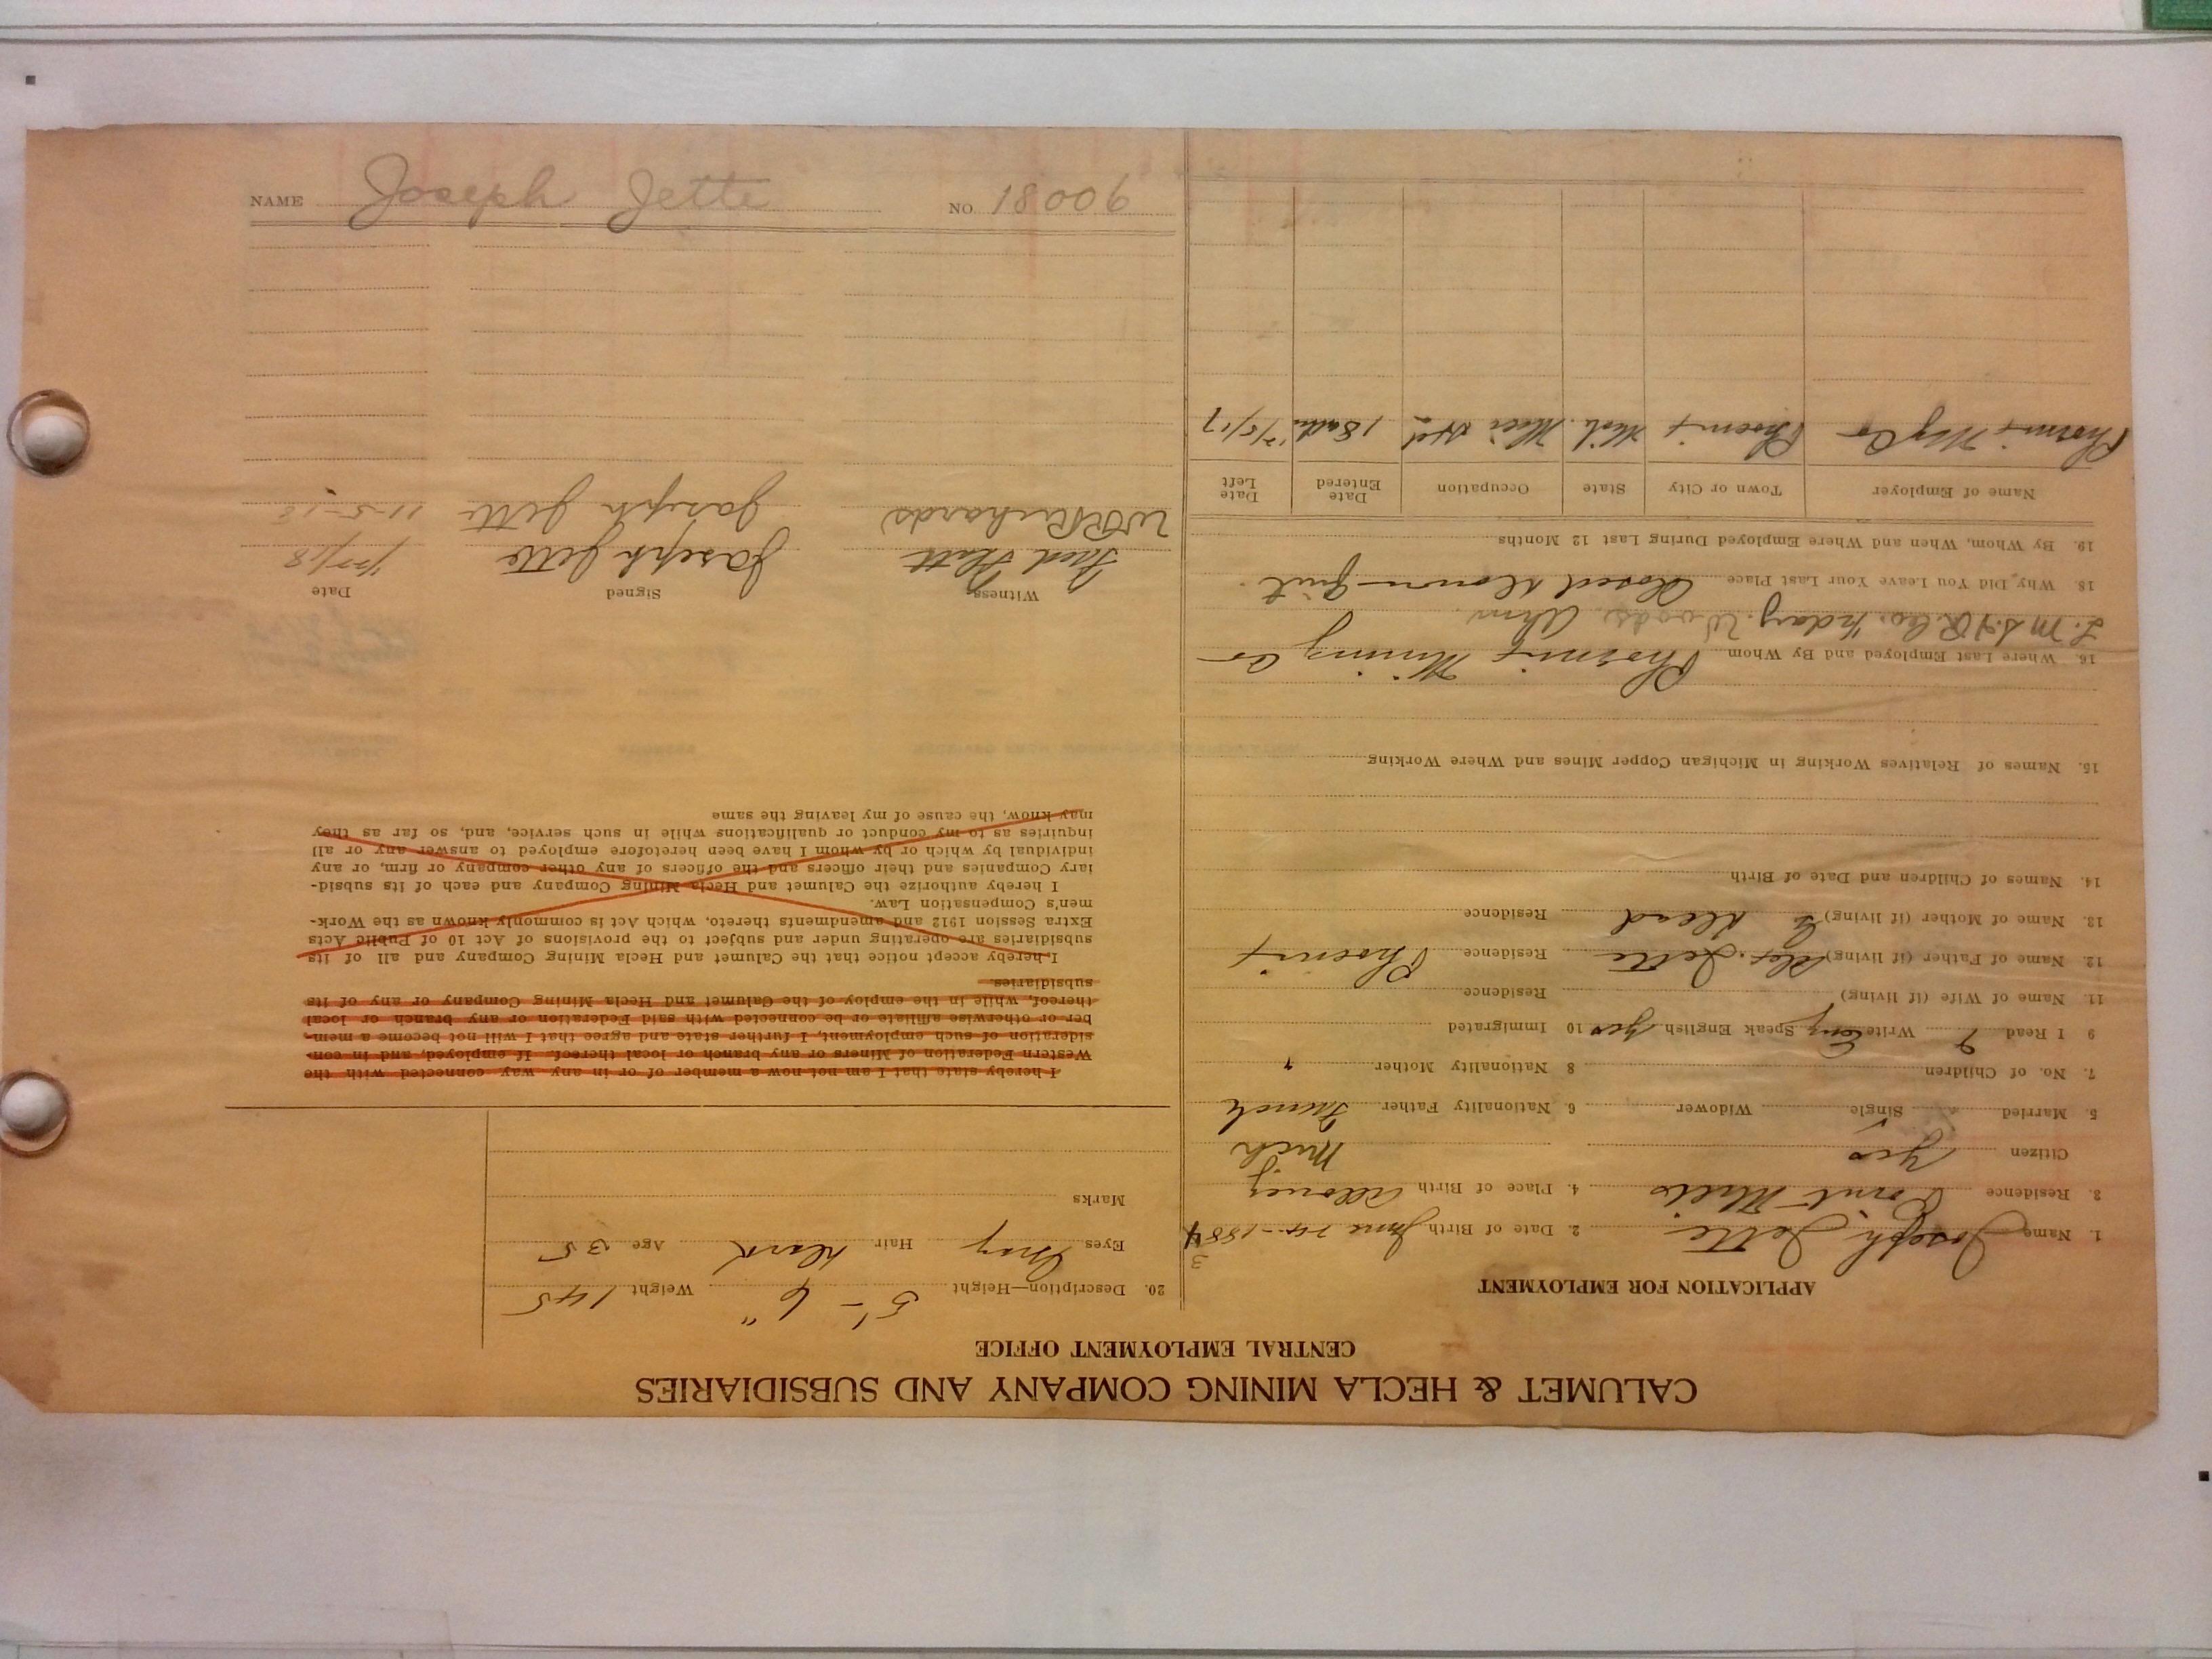 CALUMET & HECLA MINING COMPANY AND SUBSIDIARIES
CENTRAL EMPLOYMENT OFFICE
APPLICATION FOR EMPLOYMENT
1. Name Joseph Jette 2. Date of Birth June 24-1884 3
3 Residence Point Mills 4. Place of Birth Allouez
Citizen Yes Mich
5. Married Single Widower 6. Nationality Father French
7. No. of Children 8 Nationality Mother "
9 I Read Write Eng Speak English Yes 10 Immigrated
11. Name of Wife (if living) Residence
12. Name of Father (if living) Alex. Jette Residence Phoenix
13. Name of Mother (if living) Dead Residence
14. Names of Children and Date of Birth
15. Names of Relatives Working in Michigan Copper Mines and Where Working
16. Where Last Employed and By Whom Phoenix Mining Co
L. M. S. & R. Co. Woods
18. Why Did You Leave Your Last Place Closed Down - Quit
19. By Whom, When and Where Employed During Last 12 Months
Name of Employer Town or City State Occupation Date Entered Date Left
Phoenix Mfg Co Phoenix Mich. 12/5/17
20. Description—Height 5'-6" Weight 145
Eyes Gray Hair Dark Age 35
Marks
I hereby state that I am not now a member of or in any way connected with the
Western Federation of Miners or any branch or local thereof. If employed, and in con-
sideration of such employment, I further state and agree that I will not become a mem-
ber or otherwise affiliate or be connected with said Federation or any branch or local
thereof, while in the employ of the Calumet and Hecla Mining Company or any of its
subsidiaries.
I hereby accept notice that the Calumet and Hecla Mining Company and all of its
subsidiaries are operating under and subject to the provisions of Act 10 of Public Acts
Extra Session 1912 and amendments thereto, which Act is commonly known as the Work-
men's Compensation Law.
I hereby authorize the Calumet and Hecla Mining Company and each of its subsid-
iary Companies and their officers and the officers of any other company or firm, or any
individual by which or by whom I have been heretofore employed to answer any or all
inquiries as to my conduct or qualifications while in such service, and, so far as they
may know, the cause of my leaving the same
Witness Signed Date
Fred Platt Joseph Jette 1/22/18
W R Richards Joseph Jette 11-5-18
NAME Joseph Jette NO. 18006